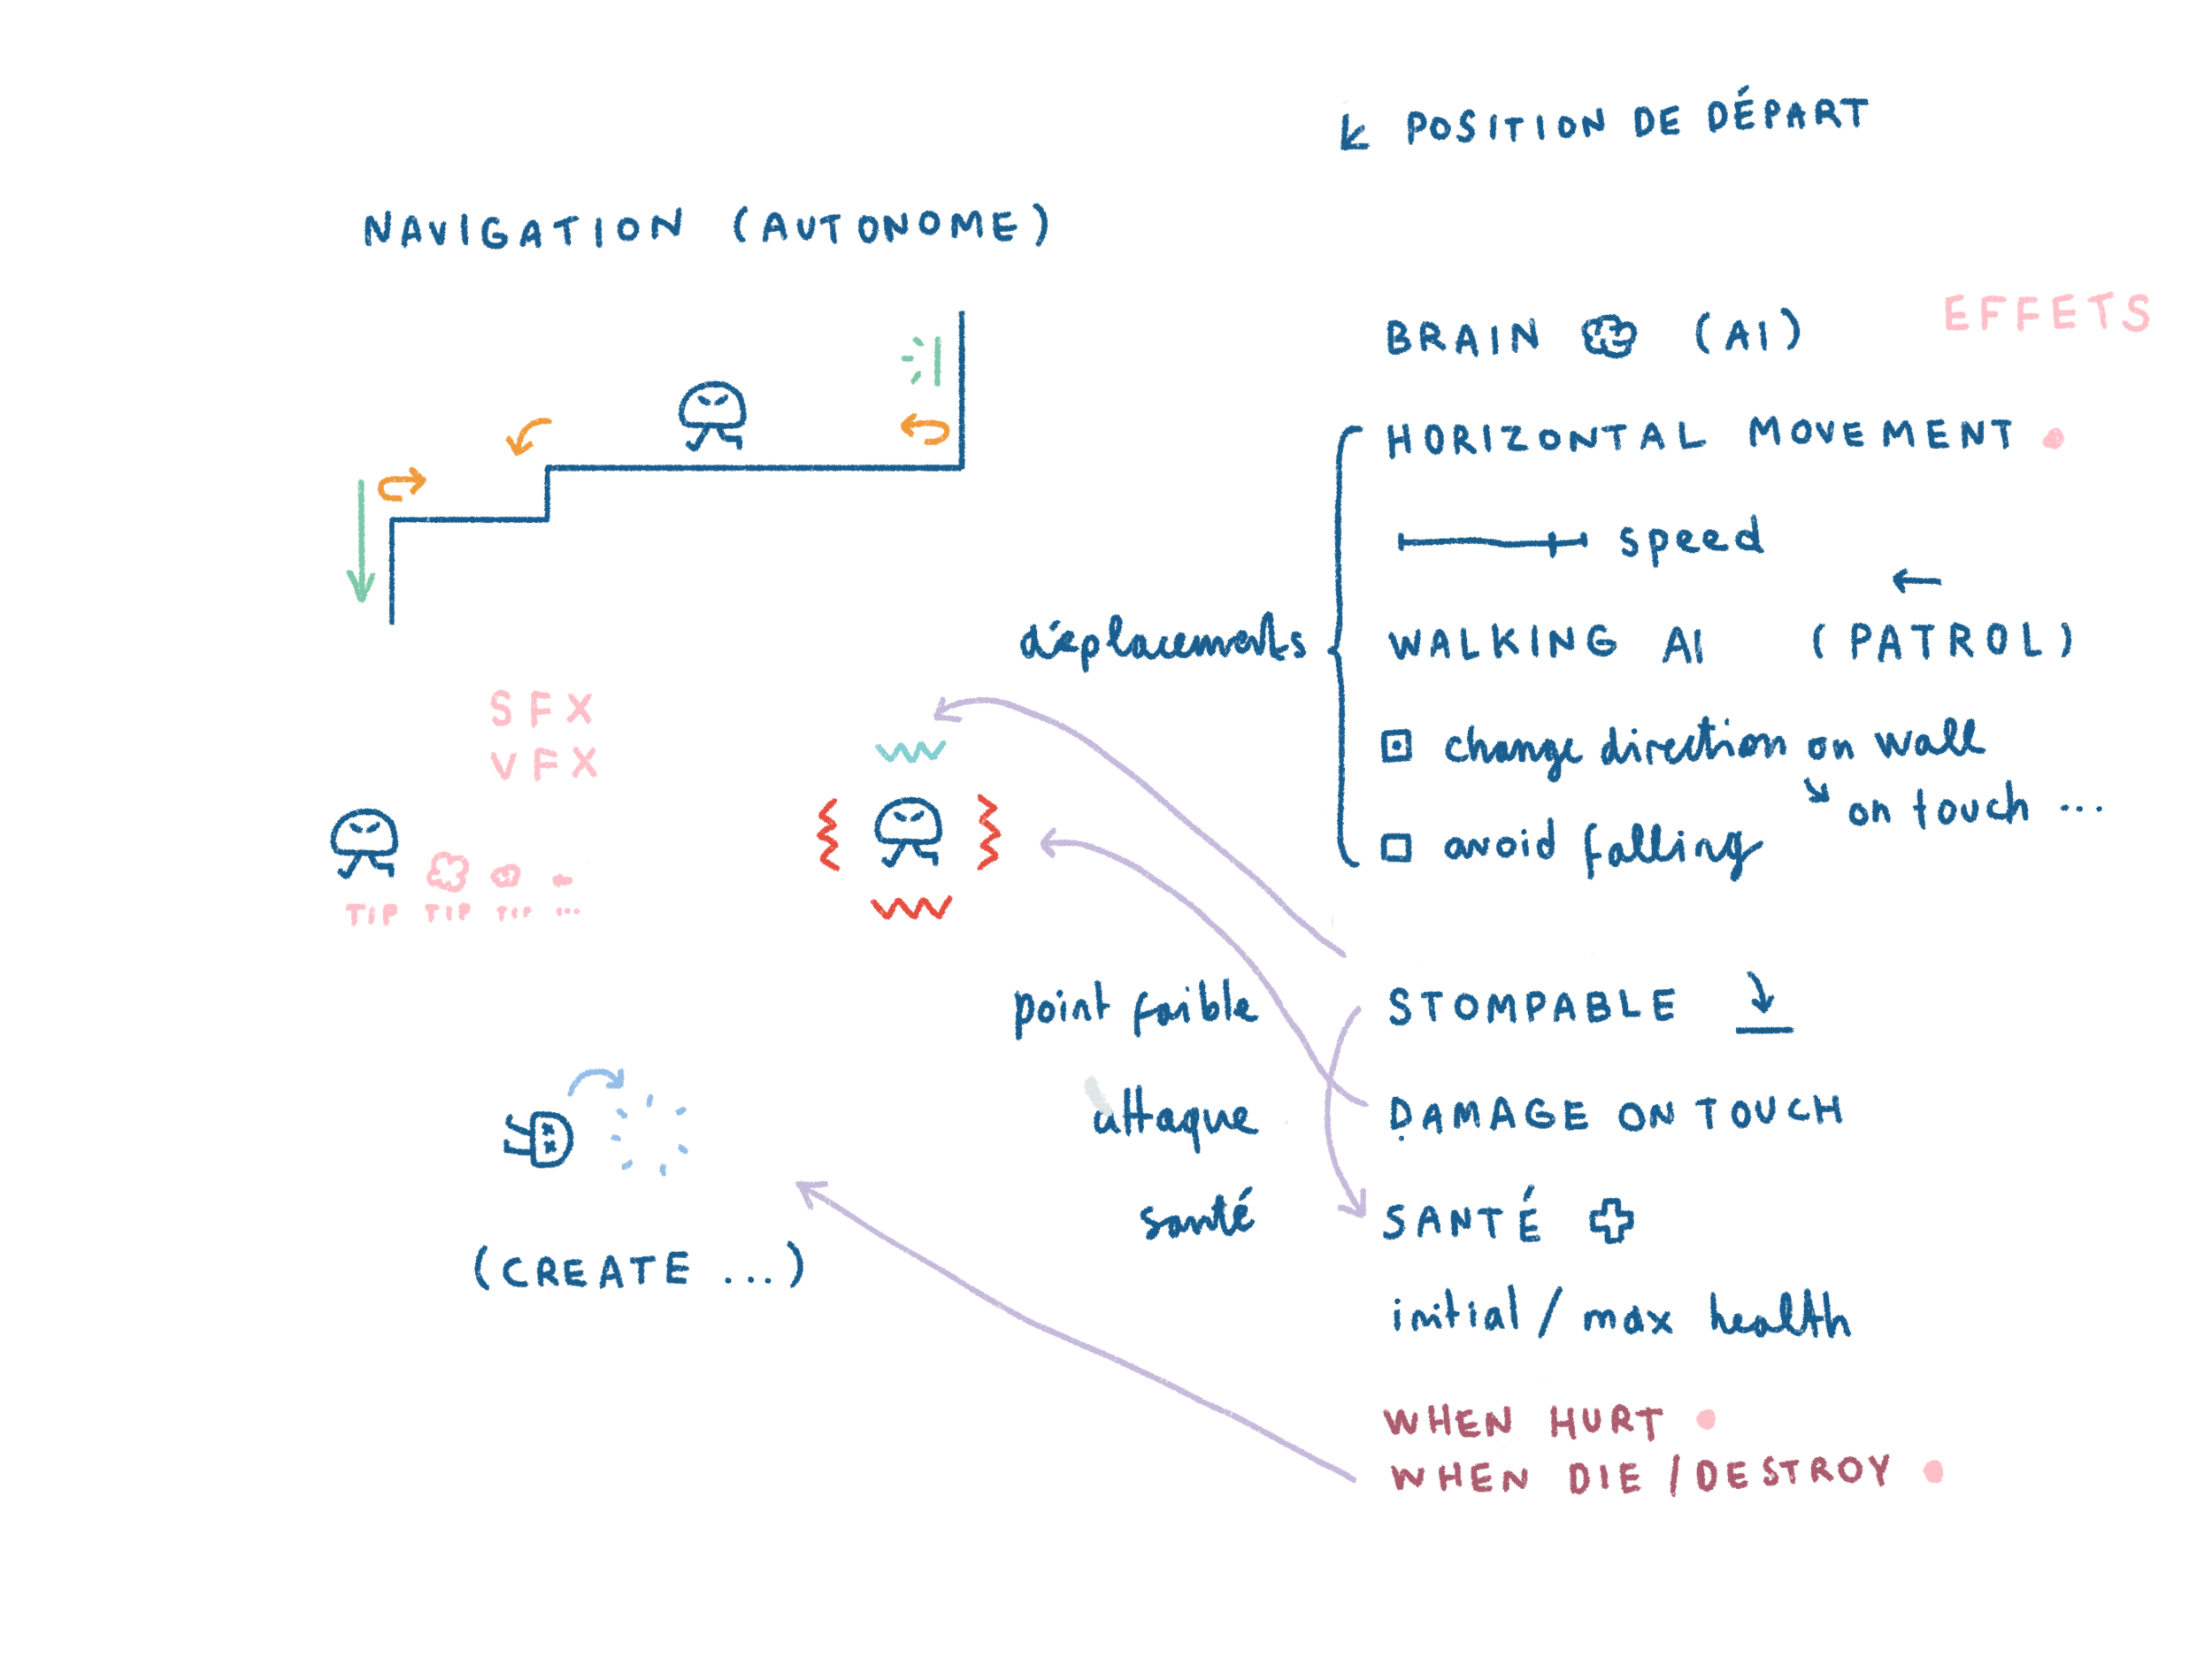 POSITION DE DÉPART
NAVIGATION (AUTONOME)
EFFETS
BRAIN (AI)
HORIZONTAL MOVEMENT
speed
déplacements
WALKING AI (PATROL)
change direction on wall
on touch ...
avoid falling
SFX
VFX
TIP TIP TIP ...
point faible
STOMPABLE
attaque
DAMAGE ON TOUCH
santé
SANTÉ
(CREATE ...)
initial / max health
WHEN HURT
WHEN DIE / DESTROY